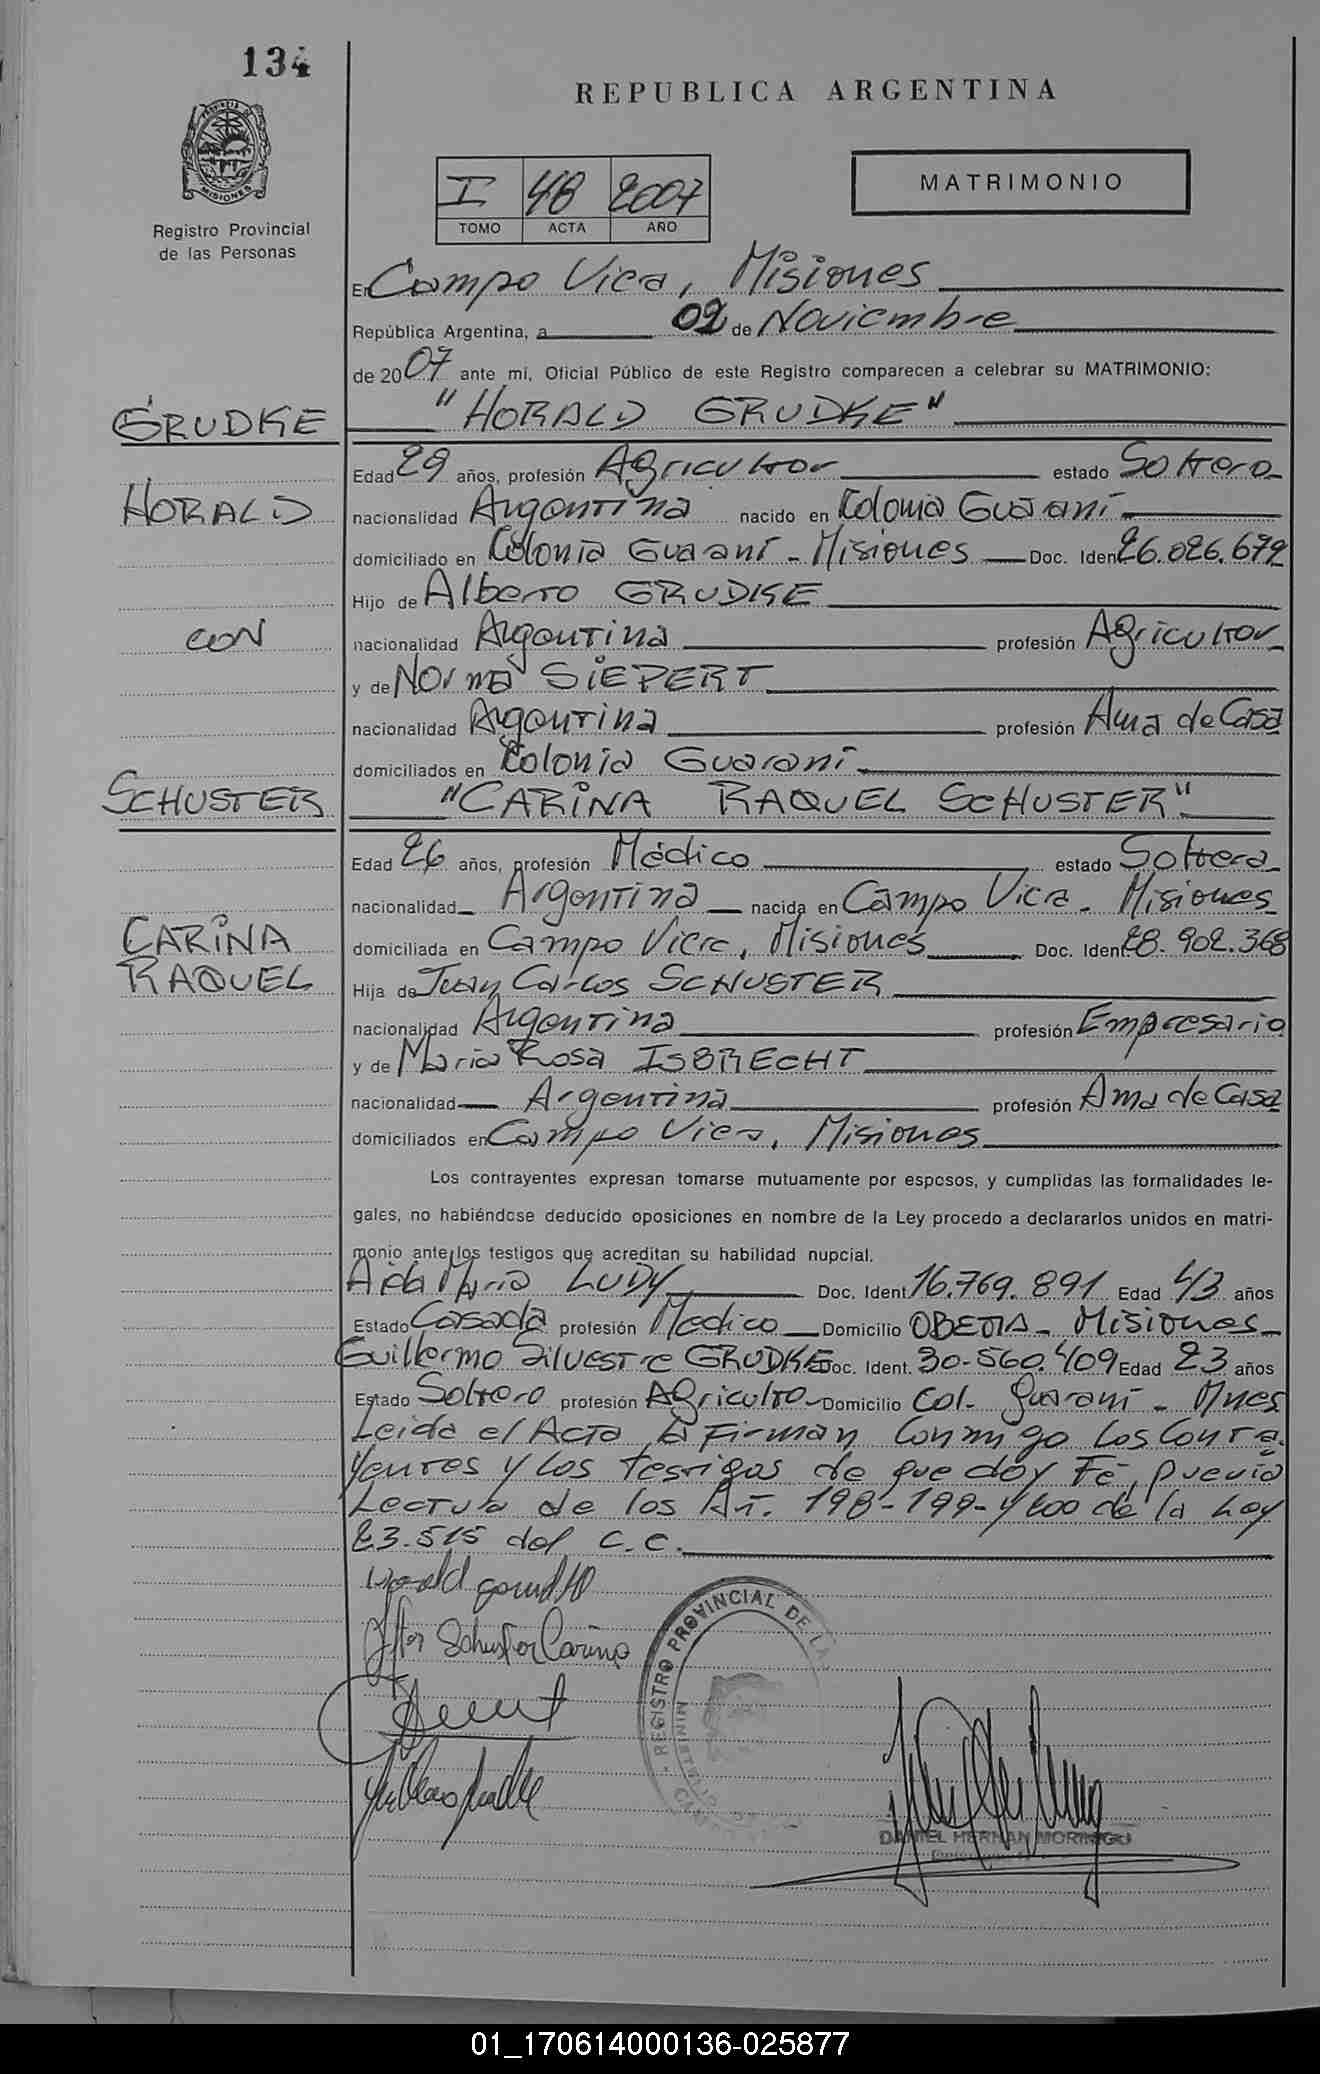 134
REPUBLICA ARGENTINA
MISIONES
Registro Provincial
de las Personas
I 48 2007
TOMO ACTA AÑO
MATRIMONIO
En Campo Viera, Misiones
República Argentina, a 02 de Noviembre
de 2007 ante mí, Oficial Público de este Registro comparecen a celebrar su MATRIMONIO:
GRUDKE "HORALD GRUDKE"
Edad 29 años, profesión Agricultor estado Soltero
HORALD nacionalidad Argentina nacido en Colonia Guaraní
domiciliado en Colonia Guaraní - Misiones Doc. Iden 26.026.672
Hijo de Alberto GRUDKE
CON nacionalidad Argentina profesión Agricultor
y de Norma SiEPERT
nacionalidad Argentina profesión Ama de Casa
domiciliados en Colonia Guaraní
SCHUSTER "CARiNA RAQUEL SCHUSTER"
Edad 26 años, profesión Médico estado Soltera
nacionalidad Argentina nacida en Campo Viera - Misiones
CARiNA domiciliada en Campo Viera, Misiones Doc. Ident 28.902.368
RAQUEL Hija de Juan Carlos SCHUSTER
nacionalidad Argentina profesión Empresario
y de María Rosa ISBRECHT
nacionalidad Argentina profesión Ama de Casa
domiciliados en Campo Viera, Misiones
Los contrayentes expresan tomarse mutuamente por esposos, y cumplidas las formalidades le-
gales, no habiéndose deducido oposiciones en nombre de la Ley procedo a declararlos unidos en matri-
monio ante los testigos que acreditan su habilidad nupcial.
Aida María LUDY Doc. Ident. 16.769.891 Edad 43 años
Estado Casada profesión Medico Domicilio OBERA - Misiones
Guillermo Silvestre GRUDKE Doc. Ident. 30.560.409 Edad 23 años
Estado Soltero profesión Agricultor Domicilio Col. Guaraní - Mnes
Leida el Acta, la Firman Conmigo los Contra
yentes y los testigos de que doy Fé, previa
Lectura de los Art. 198-199-y 200 de la Ley
23.515 del C.C.
Schuster Carina
REGISTRO PROVINCIAL DE LA
DANIEL HERNAN MORINIGO
01_170614000136-025877